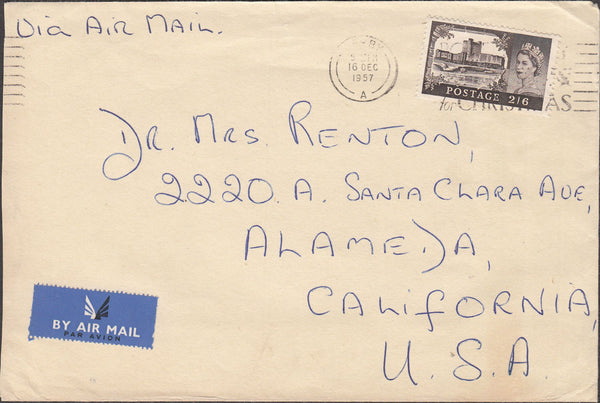 Via AIR MAIL.
16 DEC
1957
A
POSTAGE 2/6
for CHRISTMAS
DR. MRS. RENTON,
2220.A. SANTA CLARA AVE,
ALAMEDA,
CALIFORNIA,
U.S.A.
BY AIR MAIL
PAR AVION